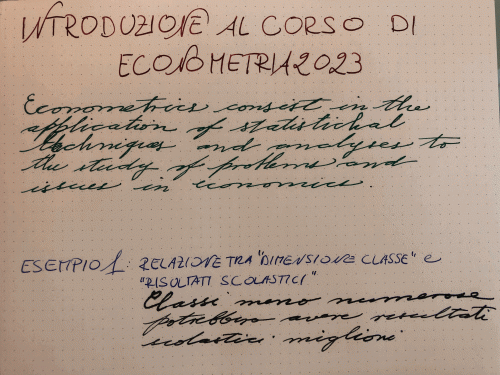 INTRODUZIONE AL CORSO DI
ECONOMETRIA 2023
Econometrics consist in the
application of statistichal
techniques and analyses to
the study of problems and
issues in economics.
ESEMPIO 1: RELAZIONE TRA "DIMENSIONE CLASSE" e
"RISULTATI SCOLASTICI"
Classi meno numerose
potrebbero avere risultati
scolastici migliori